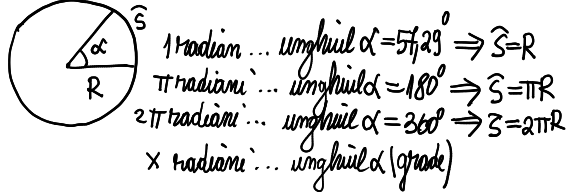 Ŝ
α
R
1 radian ... unghiul α = 57,29° ⇒ Ŝ = R
π radiani ... unghiul α = 180° ⇒ Ŝ = πR
2π radiani ... unghiul α = 360° ⇒ Ŝ = 2πR
x radiani ... unghiul α (grade)